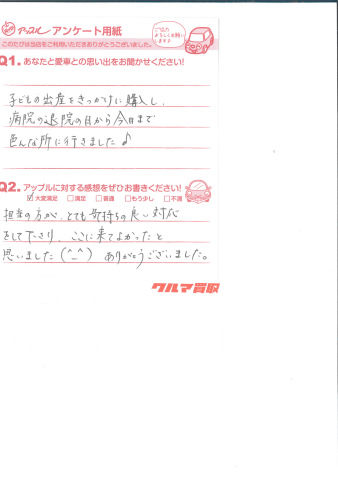 アップル アンケート用紙
このたびは当店をご利用いただきありがとうございました。
Q1. あなたと愛車との思い出をお聞かせください!
子どもの出産をきっかけに購入し、
病院の退院の日から今日まで
色んな所に行きました♪
Q2. アップルに対する感想をぜひお書きください!
☑大変満足 □満足 □普通 □もう少し □不満
担当の方が、とても気持ちの良い対応
をして下さり、ここに来てよかったと
思いました(^_^) ありがとうございました。
クルマ買取